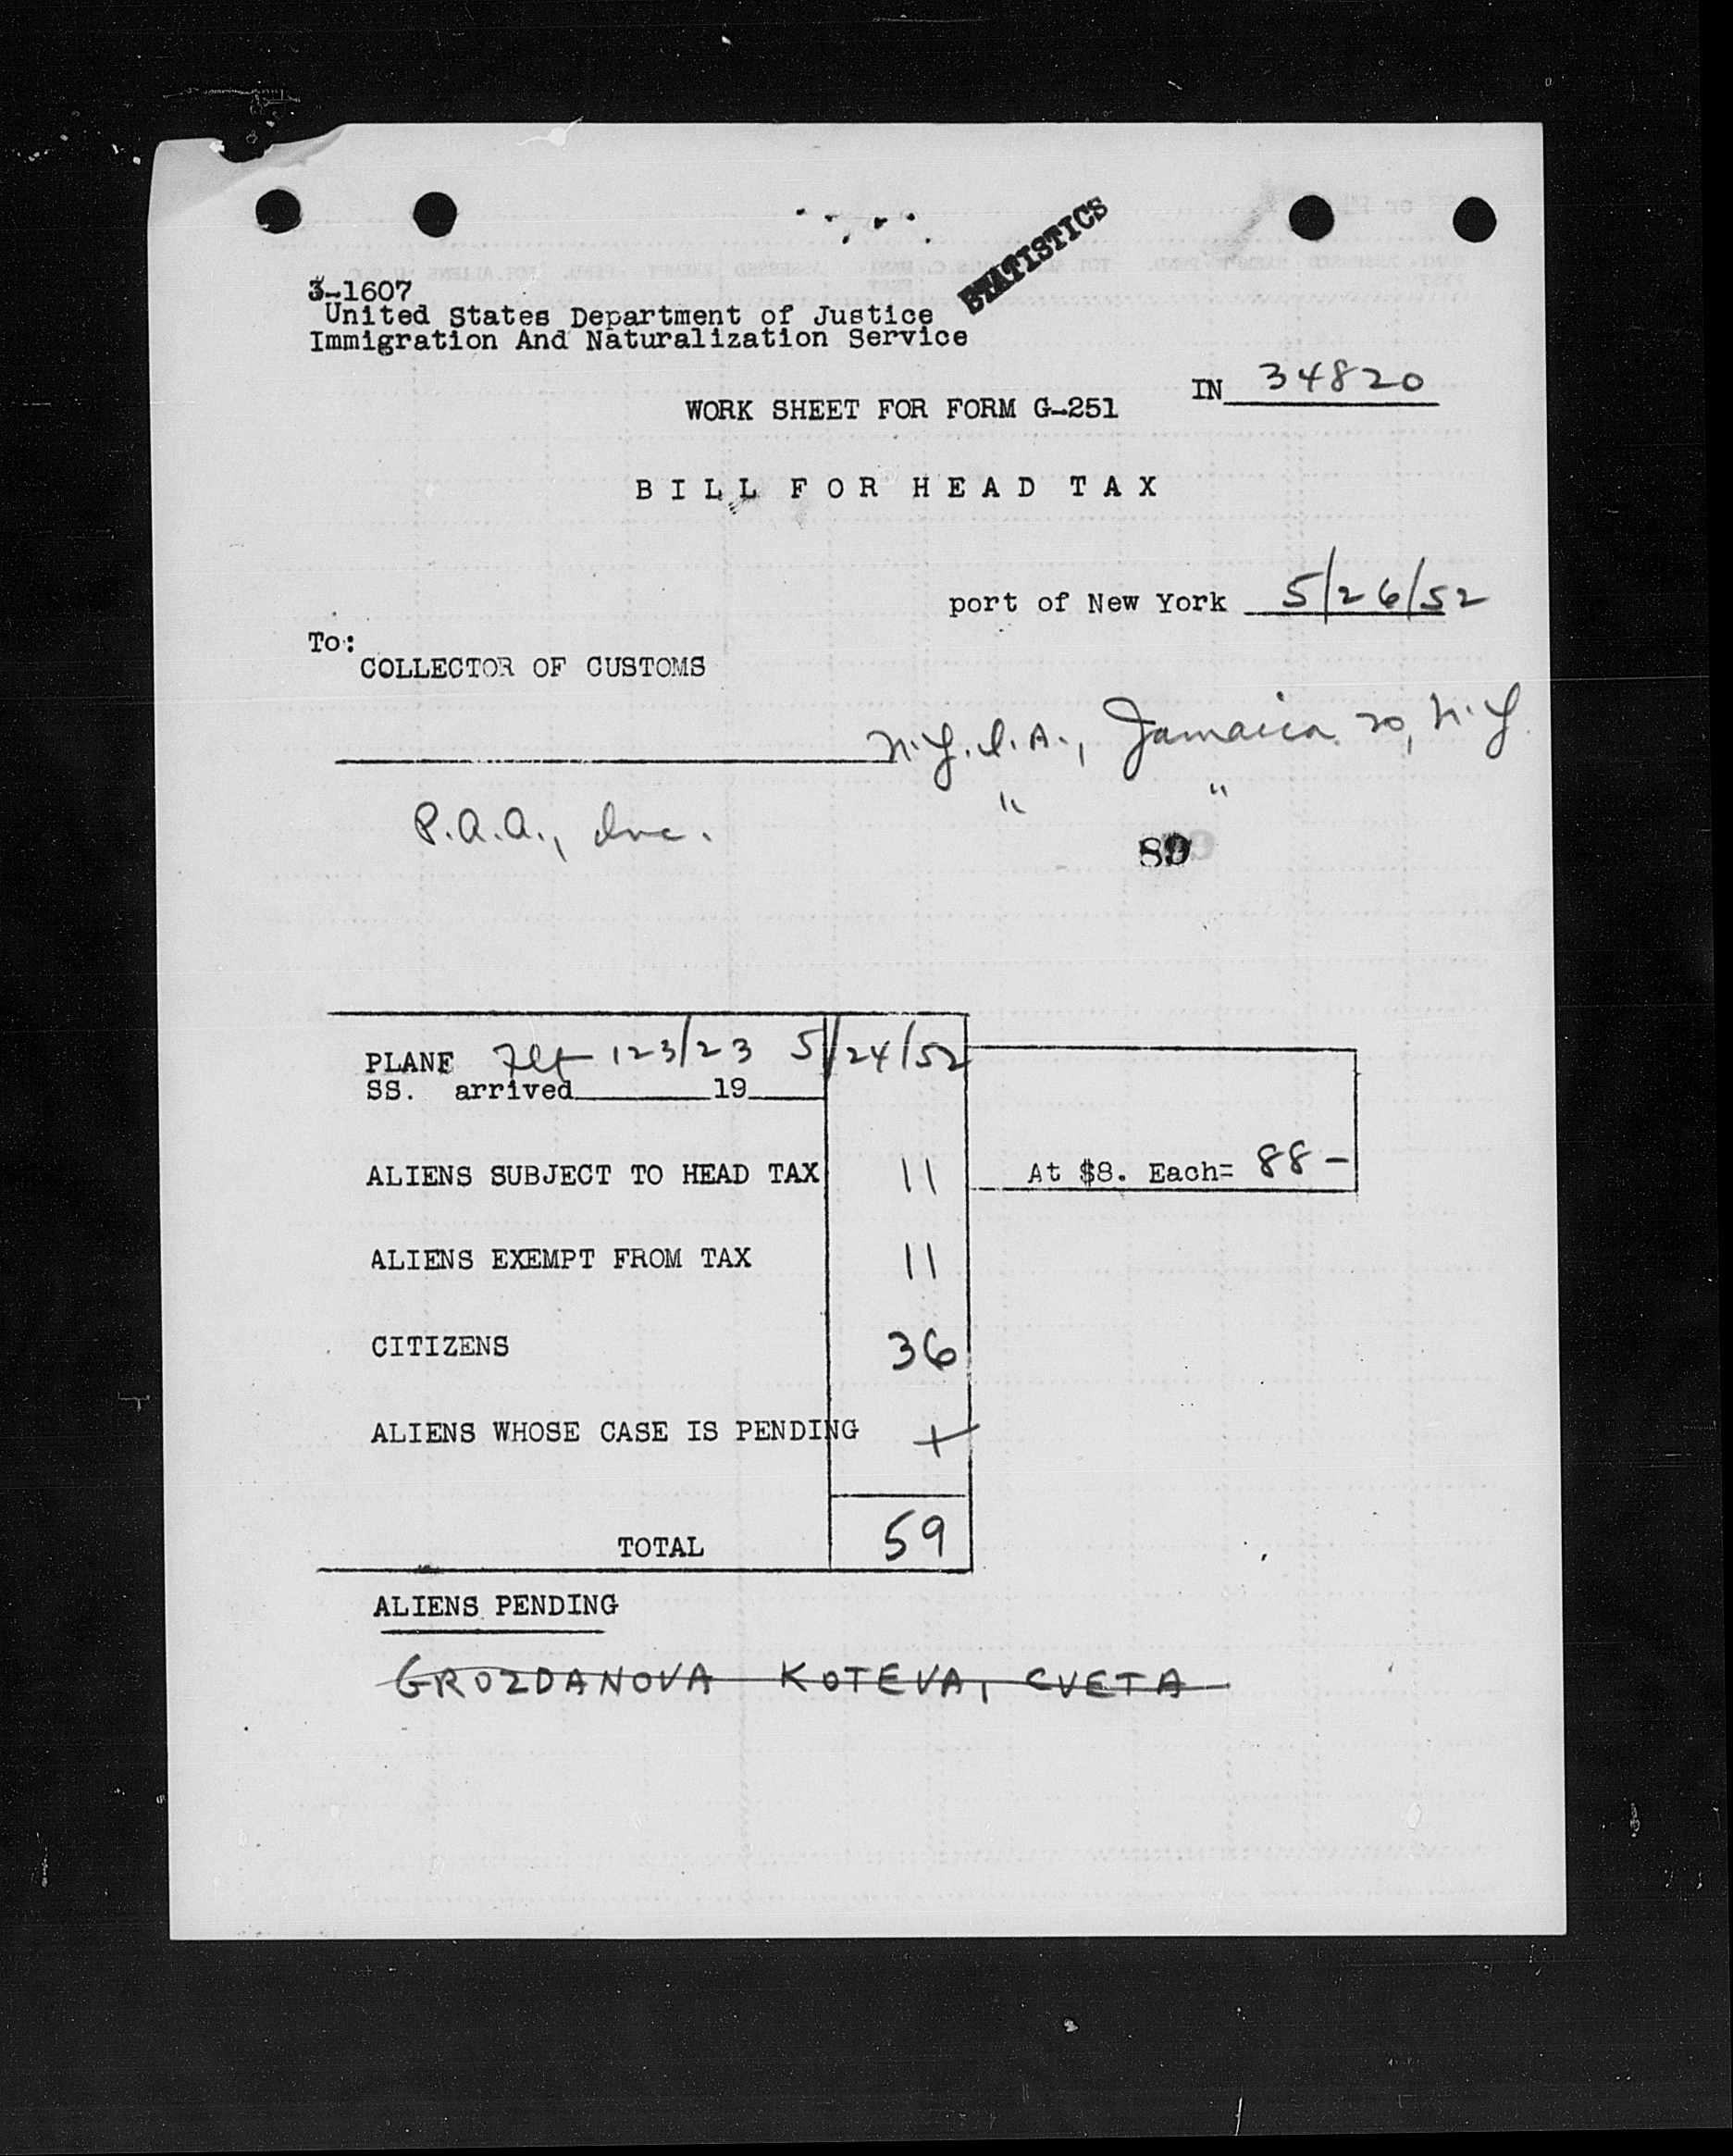 STATISTICS
3-1607
United States Department of Justice
Immigration And Naturalization Service
IN 34820
WORK SHEET FOR FORM G-251
BILL FOR HEAD TAX
port of New York 5/26/52
To:
COLLECTOR OF CUSTOMS
N.Y.I.A., Jamaica 20, N.Y.
P.A.A., Inc. " "
89
PLANE Flt 123/23 5/24/52
SS. arrived 19
ALIENS SUBJECT TO HEAD TAX 11 At $8. Each= 88-
ALIENS EXEMPT FROM TAX 11
CITIZENS 36
ALIENS WHOSE CASE IS PENDING
TOTAL 59
ALIENS PENDING
GROZDANOVA KOTEVA, CVETA